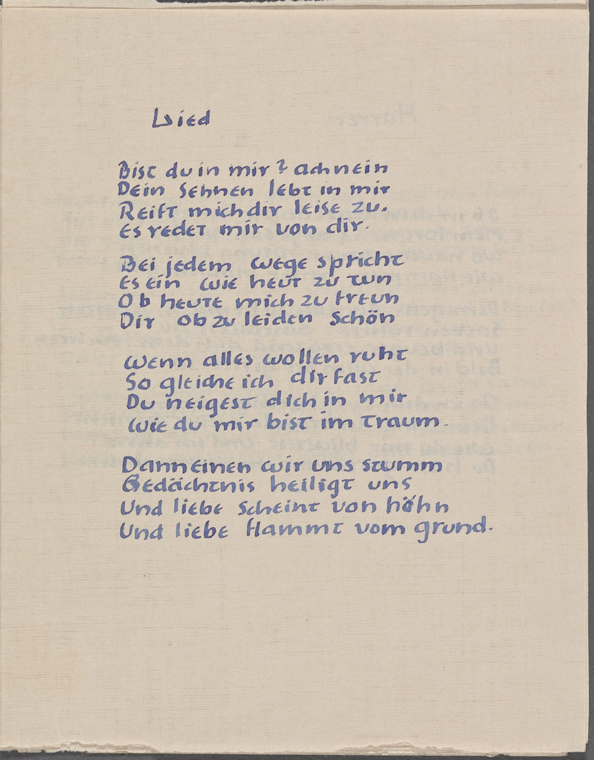 Lied
Bist du in mir? ach nein
Dein Sehnen lebt in mir
Reift mich dir leise zu.
es redet mir von dir.
Bei jedem wege spricht
Es ein wie heut zu tun
Ob heute mich zu freun
Dir ob zu leiden Schön
Wenn alles wollen ruht
So gleiche ich dir fast
Du neigest dich in mir
Wie du mir bist im Traum.
Dann einen wir uns stumm
Gedächtnis heiligt uns
Und liebe Scheint von höhn
Und liebe flammt vom grund.